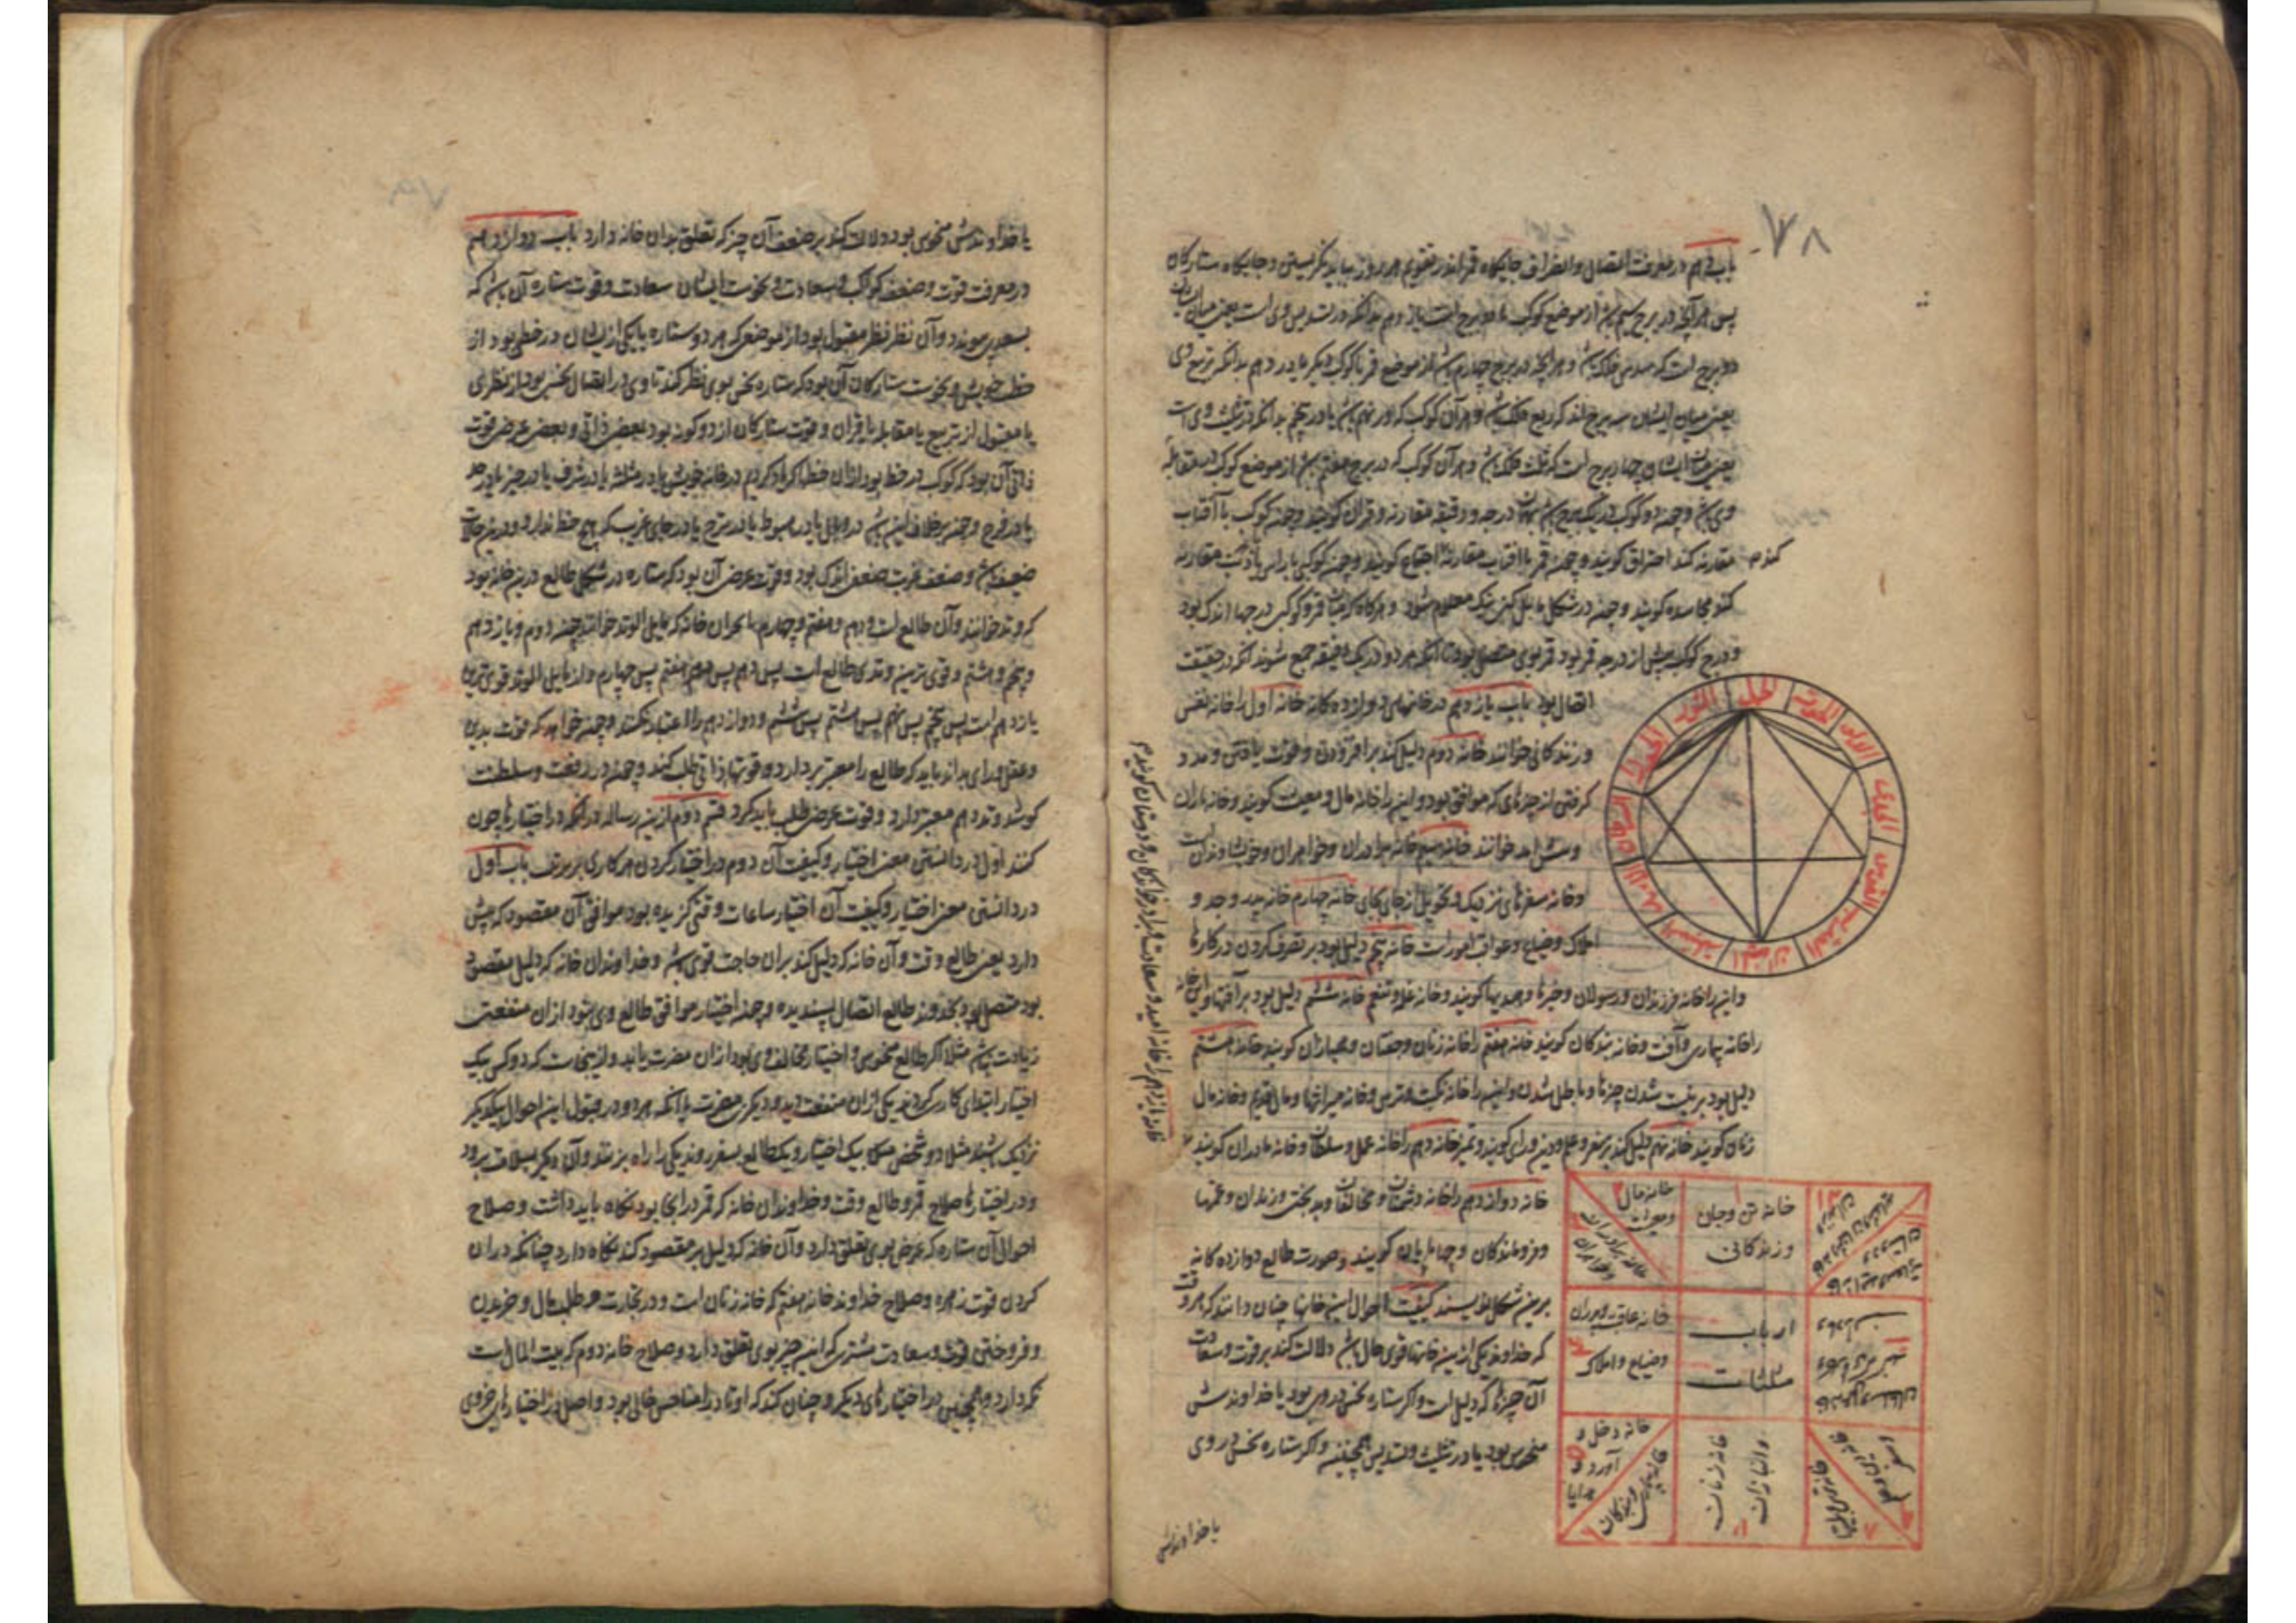 ٧٨
باب دهم در معرفت اتصال و انصراف جایگاه قمر اندر تقویم هر روز بباید نگریستن و جایگاه ستارگان
پس هر آنچه در برج سیم باشد از موضع کوکب یا در برج است یازدهم بدانکه در تسدیس وی است یعنی میان ایشان
دو برج است که سدس فلک باشد و هر آنچه در برج چهارم باشد از موضع قمر یا کوکب دیگر یا در دهم بدانکه بر تربیع وی
یعنی میان ایشان سه برج اند که ربع فلک باشد و هر آن کوکب که در نهم باشد یا در پنجم بدانکه در تثلیث وی است
یعنی میان ایشان چهار برج است که ثلث فلک باشد و هر آن کوکب که در برج هفتم باشد از موضع کوکب در مقابله
وی باشد و چون دو کوکب در یک برج باشند درجه و دقیقه مقارنه و قران گویند و چون کوکب با آفتاب
مقارنه کند احتراق گویند و چون قمر با آفتاب مقارنه اجتماع گویند و چون کوکبی با راس یا ذنب مقارنه
کند مجاسده گویند و چون در شکل تامل کنی نیک معلوم شود و هرگاه که میان قمر و کوکبی درجها اندک بود
و درج کوکب بیش از درجه قمر بود قمر بوی متصل بود تا آنکه هر دو در یک دقیقه جمع شوند آنکه در حقیقت
اتصال بود باب یازدهم در خانهای دوازده گانه خانه اول را خانه نفس
و زندگانی خوانند خانه دوم دلیل کند بر افزودن و قوت یافتن و مدد
گرفتن از چیزهای که موافق بود و این را خانه مال و معیشت گویند و خانه یاران
خوانند خانه سیم خانه برادران و خواهران و خویشاوندان است
و خانه سفرهای نزدیک و تحویل از جای بجای خانه چهارم خانه پدر و جد و
املاک و ضیاع و عواقب امور است خانه پنجم دلیل بود بر تصرف کردن در کارها
و این را خانه فرزندان و رسولان و خبرها و هدیها گویند و خانه ششم دلیل بود بر آفتها و این خانه
را خانه بیماری و آفت و خانه بندگان گویند خانه هفتم را خانه زنان و جفتان و همبازان گویند خانه هشتم
دلیل بود بر نیست شدن چیزها و باطل شدن و این را خانه نکبت و ترس و خانه میراثها و مال قدیم و خانه مال
زنان گویند خانه نهم دلیل کند بر سفر و علم و دین و رای گویند و تعبیر خانه دهم را خانه عمل و سلطان و خانه مادران گویند
خانه دوازدهم را خانه دشمنان و مخالفان و بدبختی و زندان و غمها
و فروماندگان و چهارپایان گویند و صورت طالع دوازده گانه
برین شکل نویسند کیفیت احوال این خانها چنان دانند که هر وقت
که خداوند یکی از این خانها قوی حال باشد دلالت کند بر قوت و سعادت
آن چیزها که دلیل است و اگر ستاره نحس در وی بود یا خداوندش
منحوس بود یا در تثلیث و تسدیس همچنین و اگر ستاره نحس در وی
یا خداوندش
خانه یازدهم را خانه امید و سعادت و دوستان گویند
الحمل
الثور
الجوزا
السرطان
الاسد
السنبله
المیزان
العقرب
القوس
الجدی
الدلو
الحوت
خانه تن و جان
و زندگانی
خانه مال
و معیشت
خانه برادران
و خواهران
خانه عاقبت و پدران
و ضیاع و املاک
ارباب
مثلثات
خانه زنان
و انبازان
خانه بیماری
و بندگان
یا خداوندش منحوس بود دلالت کند بر ضعف آن چیز که تعلق بدان خانه دارد باب دوازدهم
در معرفت قوت و ضعف کواکب و سعادت و نحوست ایشان سعادت و قوت ستاره آن باشد که
بسعدی پیوندد و آن نظر نظر مقبول بود از موضعی که هر دو ستاره یا یکی از ایشان در حظی بود از
حظ خویش و نحوست ستارگان آن بود که ستاره نحس بوی نظر کند تا وی در اتصال نحس بود از نظری
نا مقبول از تربیع یا مقابله یا قران و قوت ستارگان از دو گونه بود بعضی ذاتی و بعضی عرضی قوت
ذاتی آن بود که کوکب در حظ بود از آن حظها که یاد کردیم در خانه خویش یا در مثلثه یا در شرف یا در حیز یا در حد
یا در فرح و چون بر خلاف این باشد در وبال یا در هبوط یا در ترح یا در جای غریب که هیچ حظ ندارد و درین حالات
ضعیف باشد و ضعف غربت ضعف اندک بود و قوت عرضی آن بود که ستاره در شکل طالع در خانه بود
که وتد خوانند و آن طالع است و دهم و هفتم و چهارم یا در آن خانه که مایل الوتد خوانند چون دوم و یازدهم
و پنجم و هشتم و قوی ترین وتدی طالع است پس دهم پس هفتم پس چهارم و از مایل الوتد قوی ترین
یازدهم است پس پنجم پس نهم پس هشتم پس ششم و دوازدهم را اعتبار نکنند و چون خواهد که قوت بدن
و عقل و رای بداند باید که طالع را معتبر دارد و قوتها ذاتی طلب کند و چون در رفعت و سلطنت
کوشد وتد دهم معتبر دارد و قوت عرضی طلب باید کرد قسم دوم ازین رساله در آنکه در اختیارها چون
کنند اول در دانستن معنی اختیار و کیفیت آن دوم در اختیار کردن هر کاری بر ترتیب باب اول
در دانستن معنی اختیار و کیفیت آن اختیار ساعات وقتی گزیده بود موافق آن مقصود که پیش
دارد یعنی طالع وقت و آن خانه که دلیل کند بر آن حاجت قوی باشد و خداوندان خانه که دلیل مقصود
بود متصل بود بخداوند طالع اتصال پسندیده و چون اختیار موافق طالع وی بود از آن منفعت
زیادت باشد مثلا اگر طالع منحوس و اختیار مخالف وی بود از آن مضرت یابد و ازینجاست که دو کس بیک
اختیار ابتدای کاری کردند یکی از آن منفعت دید و دیگر مضرت با آنکه هر دو در قبول این احوال بیکدیگر
نزدیک باشند مثلا دو شخص بیک اختیار و یک طالع بسفر روند یکی را راه بزنند و آن دیگر بسلامت برود
و در اختیارها صلاح قمر و طالع وقت و خداوندان خانه که قمر در آنجا بود نگاه باید داشت و صلاح
احوال آن ستاره که غرض بوی تعلق دارد و آن خانه که دلیل بر مقصود کند نگاه دارد چنانکه در آن
کردن قوت زهره و صلاح خداوند خانه هفتم که خانه زنان است و در تجارت و طلب مال و خریدن
و فروختن قوت و سعادت مشتری که این چیز بوی تعلق دارد و صلاح خانه دوم که بیت المال است
نگه دارد و همچنین در اختیارهای دیگر و چنان کند که اوتاد از مناحس خالی بود و اصل در اختیارهای جزوی